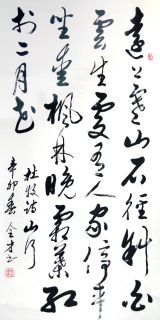 远上寒山石径斜白
云生处有人家停车
坐爱枫林晚霜叶红
于二月花
杜牧诗山行
辛卯春全才书